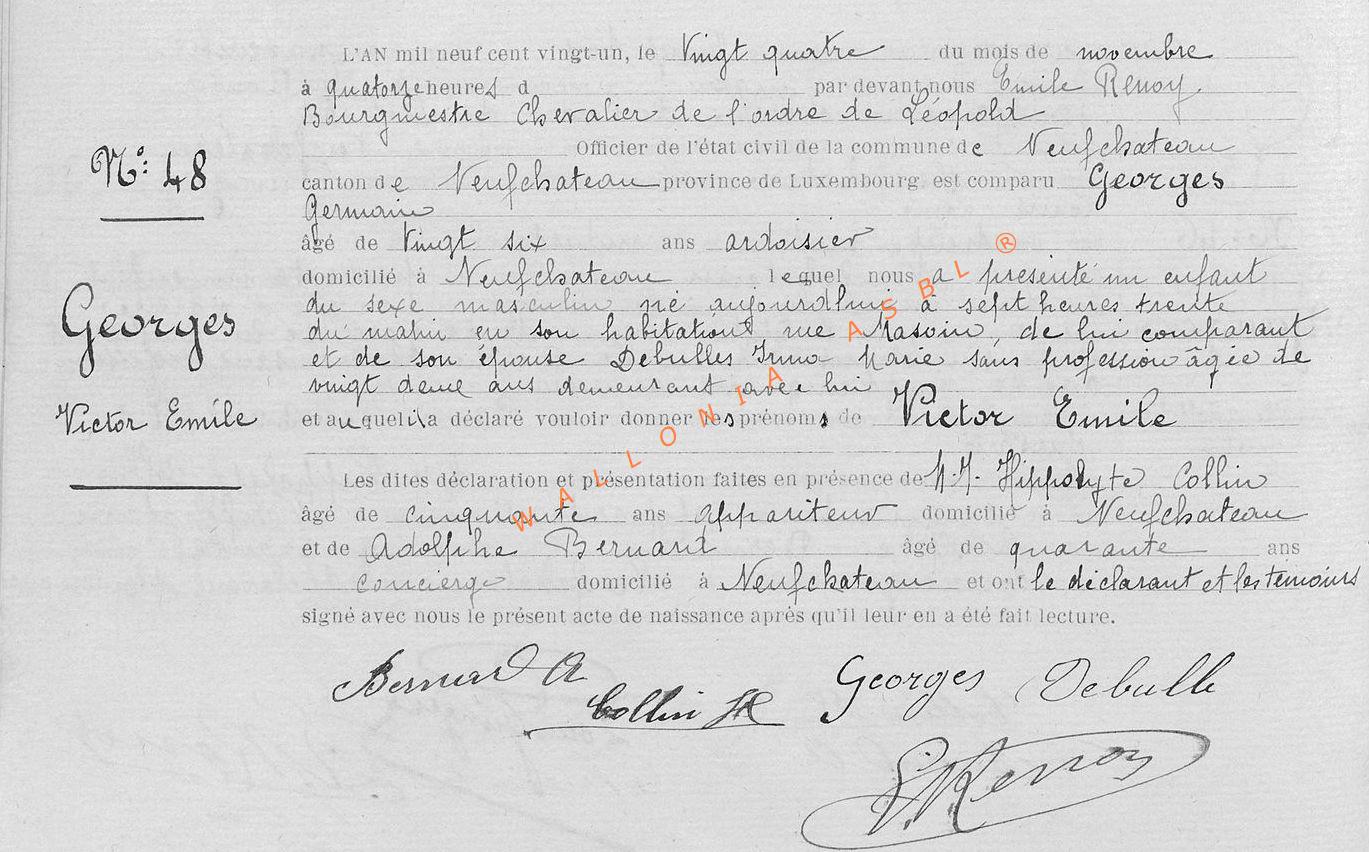 L'AN mil neuf cent vingt-un, le Vingt quatre du mois de novembre
à quatorze heures d par devant nous Emile Renoy
Bourgmestre Chevalier de l'ordre de Léopold
Officier de l'état civil de la commune de Neufchateau
N°: 48
canton de Neufchateau province de Luxembourg est comparu Georges
Germain
âgé de Vingt six ans ardoisier
domicilié à Neufchateau lequel nous a présenté un enfant
du sexe masculin né aujourd'hui à sept heures trente
Georges
du matin en son habitation rue de lui comparant
et de son épouse Debulles Irma Marie sans profession âgée de
vingt deux ans demeurant avec lui
Victor Emile
et auquel il a déclaré vouloir donner les prénoms de Victor Emile
Les dites déclaration et présentation faites en présence de M.M. Hippolyte Collin
âgé de cinquante ans appariteur domicilié à Neufchateau
et de Adolphe Bernard âgé de quarante ans
concierge domicilié à Neufchateau et ont le déclarant et les témoins
signé avec nous le présent acte de naissance après qu'il leur en a été fait lecture.
Bernard A
Collin
Georges Debulle
E. Renoy
WALLONIA ASBL ®